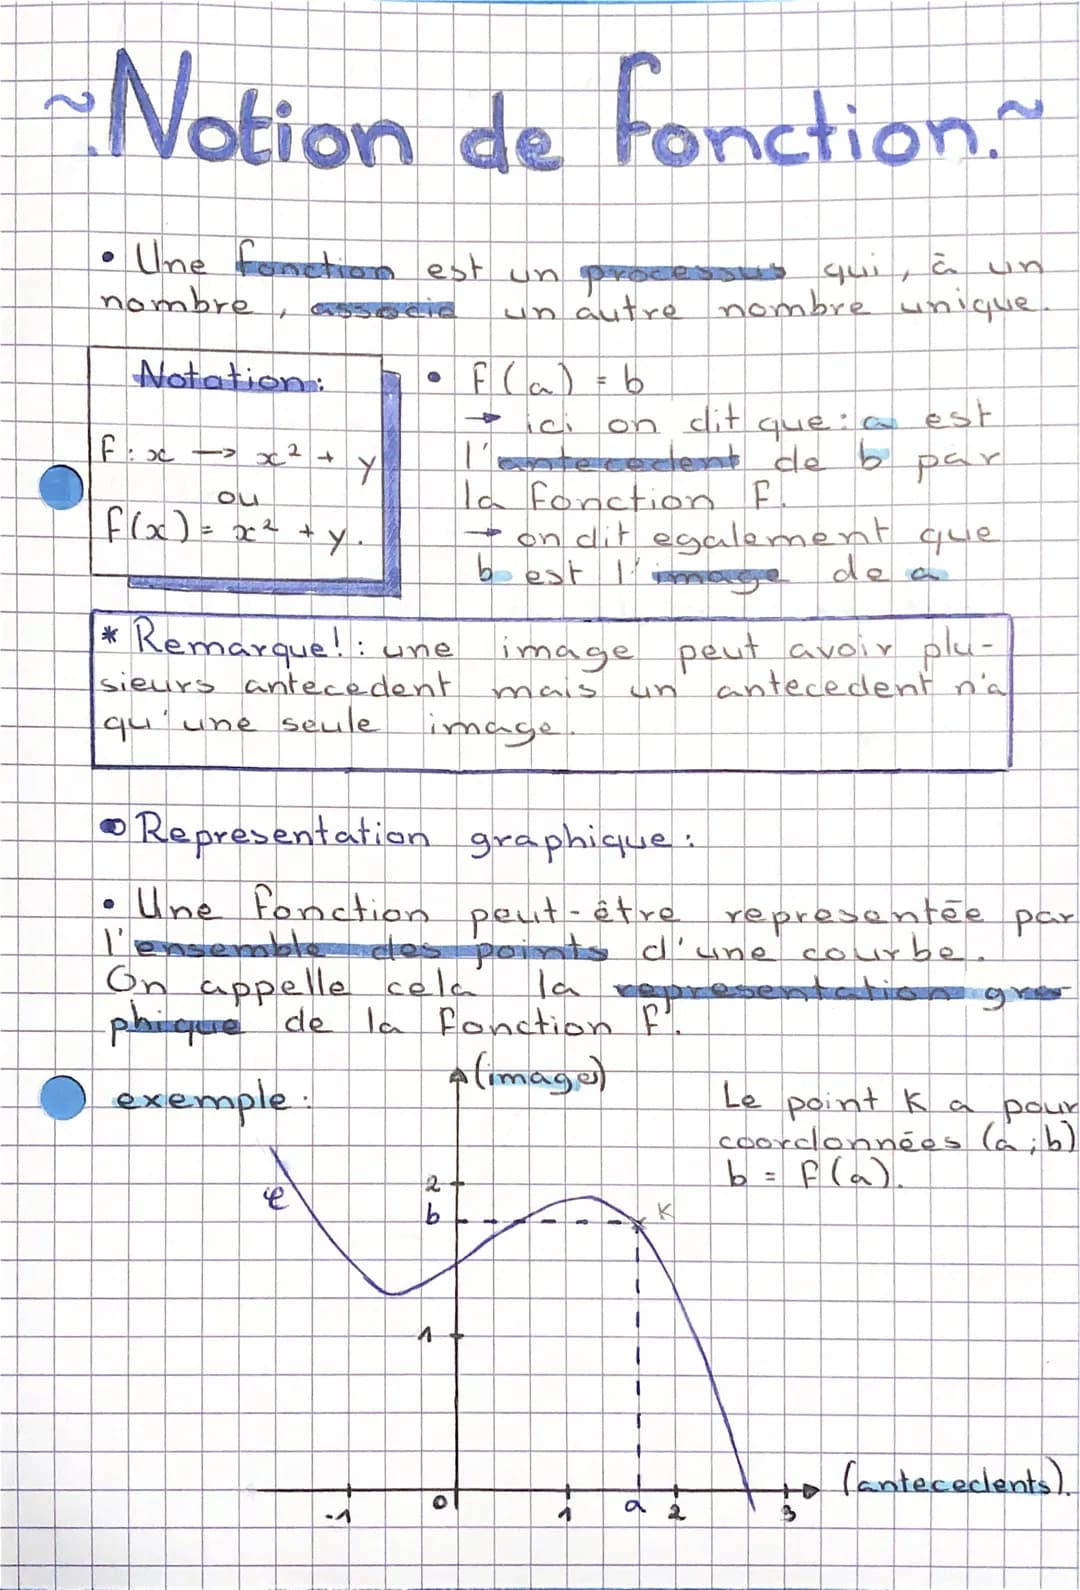 ~Notion de fonction.~
• Une fonction est un processus qui, à un
nombre, associe un autre nombre unique.
Notation:
f : x → x² + y
ou
f(x) = x² + y.
• f(a) = b
→ ici on dit que : a est
l'antecedent de b par
la fonction f.
→ on dit egalement que
b est l'image de a
* Remarque! : une image peut avoir plu-
sieurs antecedent mais un antecedent n'a
qu'une seule image.
Representation graphique :
• Une fonction peut-être representée par
l'ensemble des points d'une courbe.
On appelle cela la representation gra-
phique de la fonction f.
exemple :
(images)
Le point K a pour
coordonnées (a;b)
b = f(a).
2
b
K
1
(antecedents).
-1
0
1
a
2
3